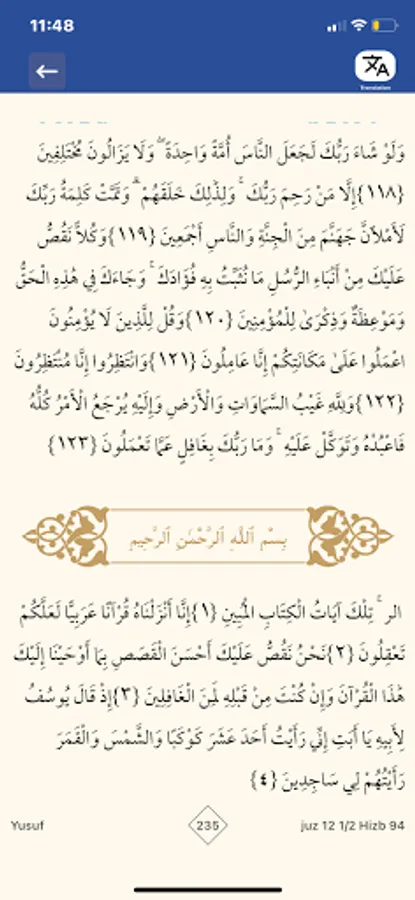 11:48
Translation
وَلَوْ شَاءَ رَبُّكَ لَجَعَلَ النَّاسَ أُمَّةً وَاحِدَةً ۖ وَلَا يَزَالُونَ مُخْتَلِفِينَ
{١١٨}إِلَّا مَنْ رَحِمَ رَبُّكَ ۚ وَلِذَٰلِكَ خَلَقَهُمْ ۗ وَتَمَّتْ كَلِمَةُ رَبِّكَ
لَأَمْلَأَنَّ جَهَنَّمَ مِنَ الْجِنَّةِ وَالنَّاسِ أَجْمَعِينَ {١١٩}وَكُلًّا نَقُصُّ
عَلَيْكَ مِنْ أَنْبَاءِ الرُّسُلِ مَا نُثَبِّتُ بِهِ فُؤَادَكَ ۚ وَجَاءَكَ فِي هَٰذِهِ الْحَقُّ
وَمَوْعِظَةٌ وَذِكْرَىٰ لِلْمُؤْمِنِينَ {١٢٠}وَقُلْ لِلَّذِينَ لَا يُؤْمِنُونَ
اعْمَلُوا عَلَىٰ مَكَانَتِكُمْ إِنَّا عَامِلُونَ {١٢١}وَانْتَظِرُوا إِنَّا مُنْتَظِرُونَ
{١٢٢}وَلِلَّهِ غَيْبُ السَّمَاوَاتِ وَالْأَرْضِ وَإِلَيْهِ يُرْجَعُ الْأَمْرُ كُلُّهُ
فَاعْبُدْهُ وَتَوَكَّلْ عَلَيْهِ ۚ وَمَا رَبُّكَ بِغَافِلٍ عَمَّا تَعْمَلُونَ {١٢٣}
بِسْمِ ٱللَّهِ ٱلرَّحْمَٰنِ ٱلرَّحِيمِ
الر ۚ تِلْكَ آيَاتُ الْكِتَابِ الْمُبِينِ {١}إِنَّا أَنْزَلْنَاهُ قُرْآنًا عَرَبِيًّا لَعَلَّكُمْ
تَعْقِلُونَ {٢}نَحْنُ نَقُصُّ عَلَيْكَ أَحْسَنَ الْقَصَصِ بِمَا أَوْحَيْنَا إِلَيْكَ
هَٰذَا الْقُرْآنَ وَإِنْ كُنْتَ مِنْ قَبْلِهِ لَمِنَ الْغَافِلِينَ {٣}إِذْ قَالَ يُوسُفُ
لِأَبِيهِ يَا أَبَتِ إِنِّي رَأَيْتُ أَحَدَ عَشَرَ كَوْكَبًا وَالشَّمْسَ وَالْقَمَرَ
رَأَيْتُهُمْ لِي سَاجِدِينَ {٤}
Yusuf 235 juz 12 1/2 Hizb 94